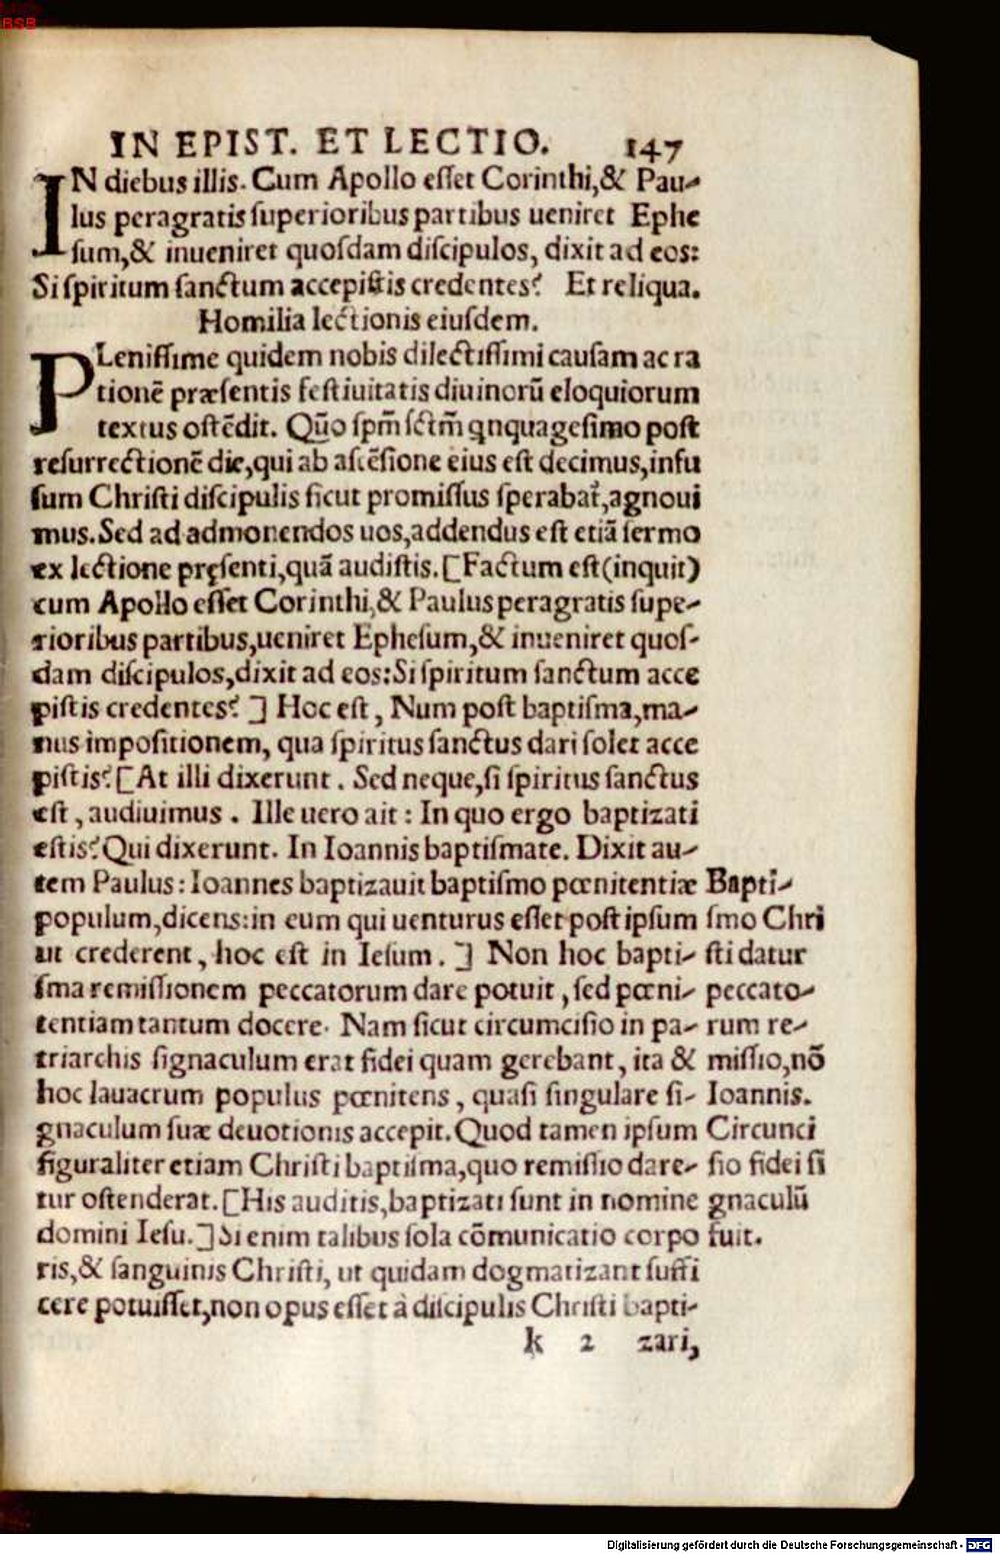 BSB
IN EPIST. ET LECTIO. 147
IN diebus illis. Cum Apollo esset Corinthi,& Pau-
lus peragratis superioribus partibus ueniret Ephe
sum,& inueniret quosdam discipulos, dixit ad eos:
Si spiritum sanctum accepistis credentes? Et reliqua.
Homilia lectionis eiusdem.
PLenissime quidem nobis dilectissimi causam ac ra
tionē præsentis festiuitatis diuinorū eloquiorum
textus ostēdit. Qūo spm̄ sctm̄ qnquagesimo post
resurrectionē die,qui ab ascēsione eius est decimus,infu
sum Christi discipulis sicut promissus sperabat̄,agnoui
mus. Sed ad admonendos uos,addendus est etiā sermo
ex lectione pręsenti,quā audistis. [Factum est(inquit)
cum Apollo esset Corinthi,& Paulus peragratis supe-
rioribus partibus,ueniret Ephesum,& inueniret quos-
dam discipulos,dixit ad eos:Si spiritum sanctum acce
pistis credentes? ] Hoc est, Num post baptisma,ma-
nus impositionem, qua spiritus sanctus dari solet acce
pistis? [At illi dixerunt. Sed neque,si spiritus sanctus
est, audiuimus. Ille uero ait: In quo ergo baptizati
estis? Qui dixerunt. In Ioannis baptismate. Dixit au-
tem Paulus: Ioannes baptizauit baptismo pœnitentiæ
populum,dicens:in eum qui uenturus esset post ipsum
ut crederent, hoc est in Iesum. ] Non hoc bapti-
sma remissionem peccatorum dare potuit, sed pœni-
tentiam tantum docere. Nam sicut circumcisio in pa-
triarchis signaculum erat fidei quam gerebant, ita &
hoc lauacrum populus pœnitens, quasi singulare si-
gnaculum suæ deuotionis accepit. Quod tamen ipsum
figuraliter etiam Christi baptisma,quo remissio dare-
tur ostenderat. [His auditis,baptizati sunt in nomine
domini Iesu.] Si enim talibus sola cōmunicatio corpo
ris,& sanguinis Christi, ut quidam dogmatizant suffi
cere potuisset,non opus esset à discipulis Christi bapti-
k 2 zari,
Bapti-
smo Chri
sti datur
peccato-
rum re-
missio,nō
Ioannis.
Circunci
sio fidei si
gnaculū
fuit.
Digitalisierung gefördert durch die Deutsche Forschungsgemeinschaft - DFG